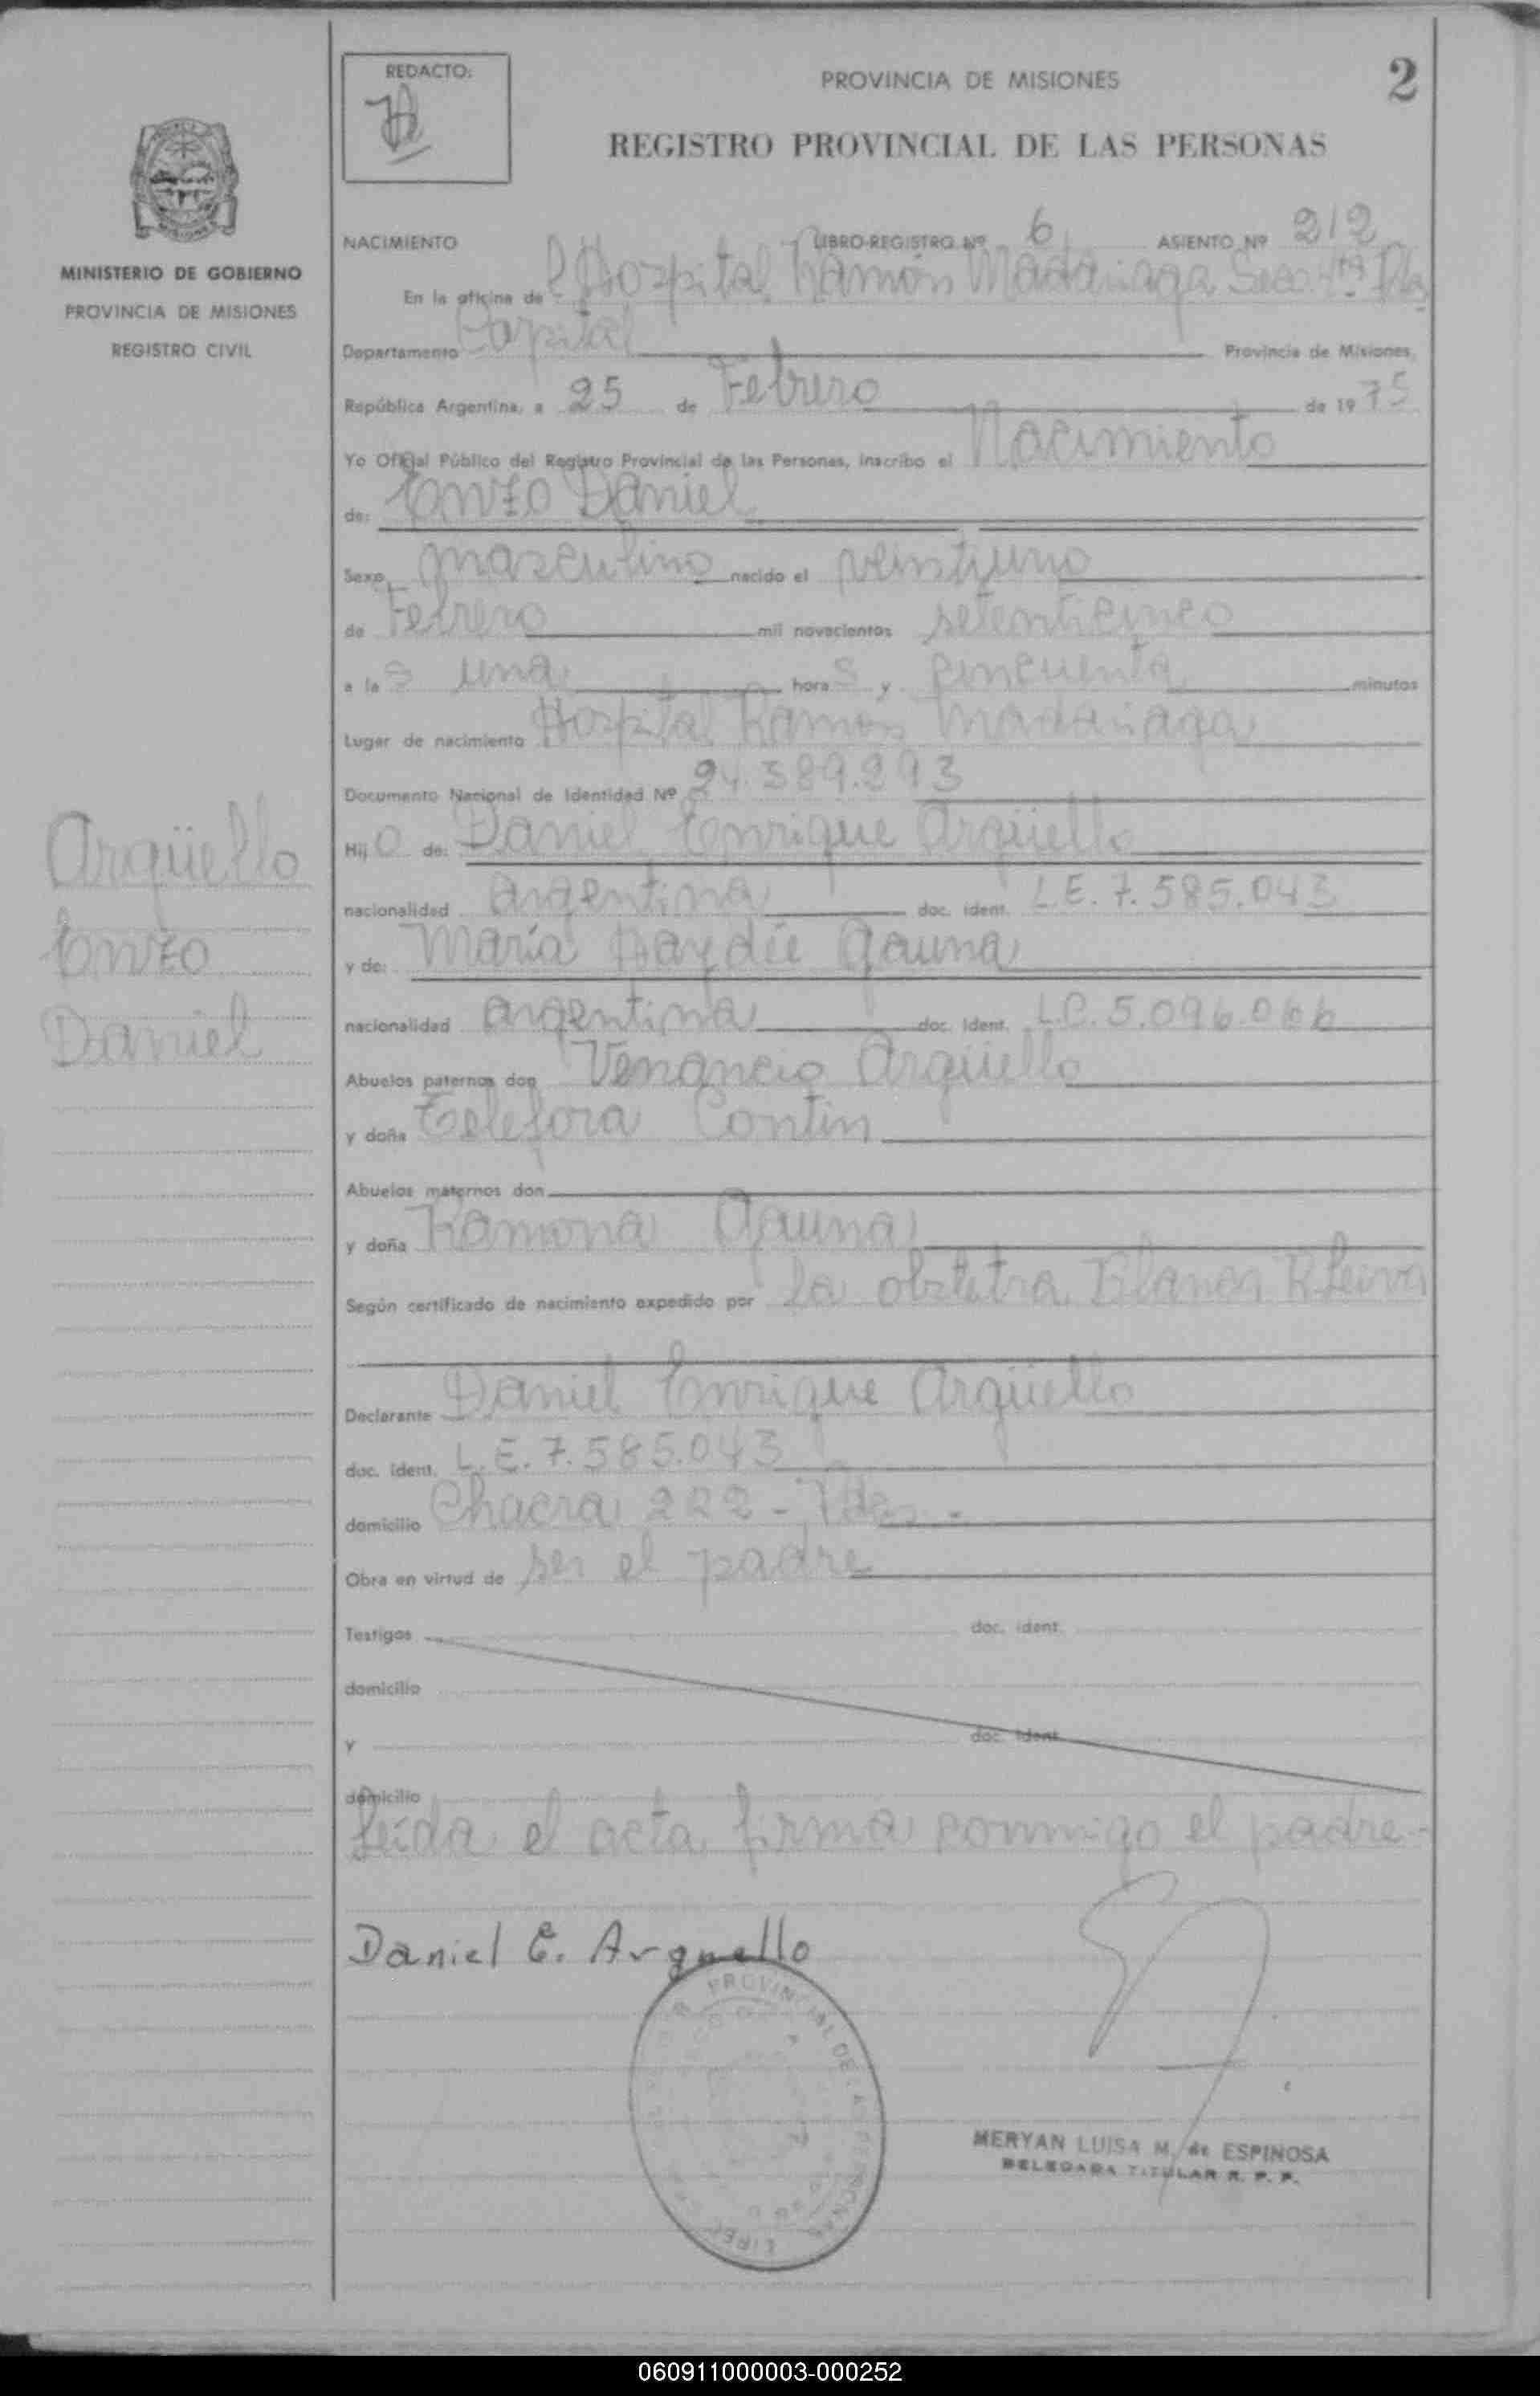 REDACTO:
PROVINCIA DE MISIONES
2
REGISTRO PROVINCIAL DE LAS PERSONAS
MINISTERIO DE GOBIERNO
PROVINCIA DE MISIONES
REGISTRO CIVIL
NACIMIENTO LIBRO-REGISTRO Nº 6 ASIENTO Nº 212
En la oficina de Hospital Ramón Madariaga Secc. 4ta
Departamento Capital Provincia de Misiones,
República Argentina, a 25 de Febrero de 1975
Yo Oficial Público del Registro Provincial de las Personas, inscribo el Nacimiento
de: Enzo Daniel
Sexo masculino nacido el veintiuno
de Febrero mil novecientos setenticinco
a las una horas y cincuenta minutos
Lugar de nacimiento Hospital Ramón Madariaga
Documento Nacional de Identidad Nº 24.389.293
Hijo de: Daniel Enrique Argüello
nacionalidad argentina doc. ident. L.E. 7.585.043
y de: María Haydée Gauna
nacionalidad argentina doc. ident. L.C. 5.096.066
Abuelos paternos don Venancio Argüello
y doña Telefora Contin
Abuelos maternos don
y doña Ramona Gauna
Según certificado de nacimiento expedido por la obstetra Blanca R. Leiva
Declarante Daniel Enrique Argüello
doc. ident. L.E. 7.585.043
domicilio Chacra 222 -
Obra en virtud de ser el padre
Testigos doc. ident.
domicilio
y doc. ident.
domicilio
Leída el acta firma conmigo el padre.-
Argüello
Enzo
Daniel
Daniel E. Arguello
PROVINCIAL DE
MERYAN LUISA M. de ESPINOSA
DELEGADA TITULAR R. P. P.
060911000003-000252